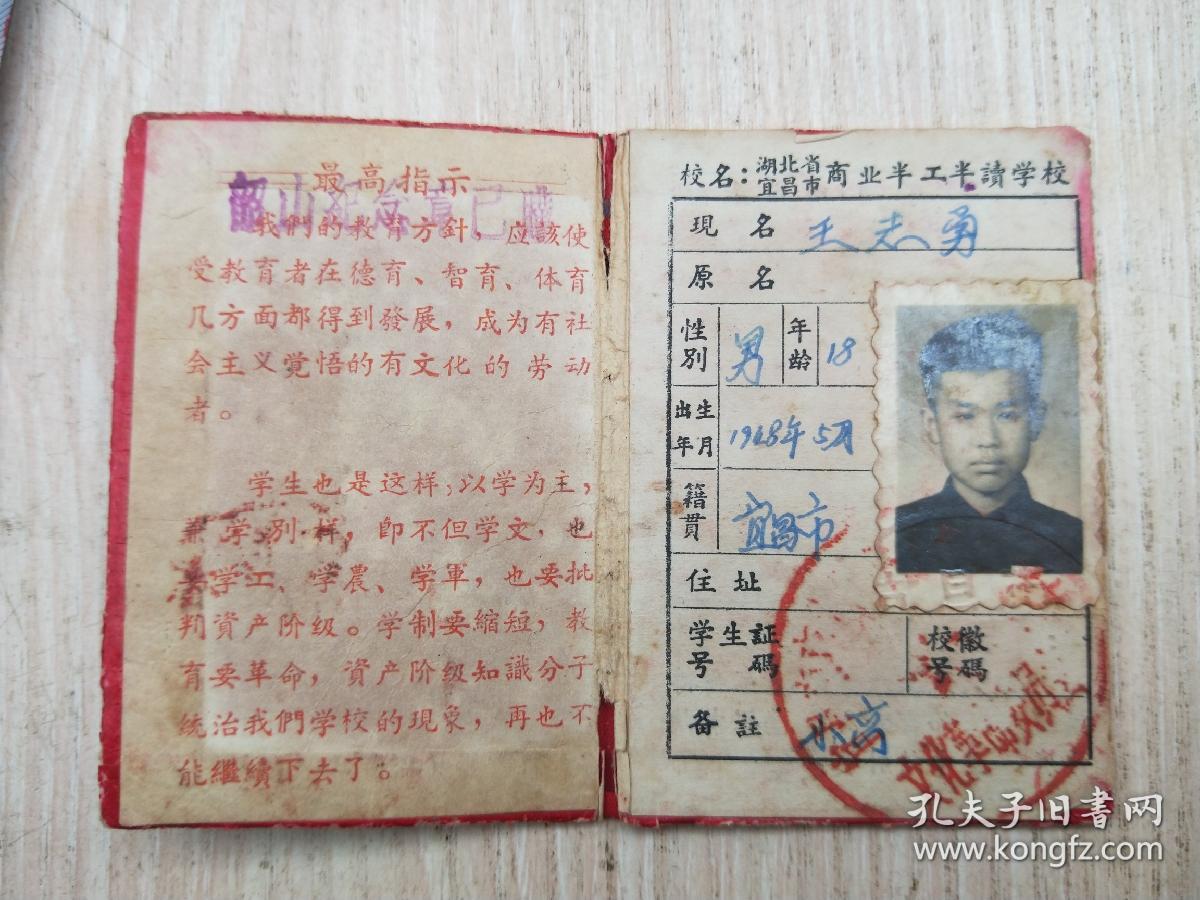 最高指示
我們的教育方針，应該使
受教育者在德育、智育、体育
几方面都得到發展，成为有社
会主义覚悟的有文化的劳动
者。
学生也是这样，以学为主，
兼学別样，卽不但学文，也
要学工、学農、学軍，也要批
判資产阶级。学制要縮短，教
育要革命，資产阶级知識分子
统治我們学校的現象，再也不
能繼續下去了。
校名：湖北省宜昌市商业半工半讀学校
現名 王志勇
原名
性別 男 年龄 18
出生年月 1948年5月
籍貫 宜昌市
住址
学生証号碼 校徽号碼
备註 小高
文化革命
孔夫子旧书网
www.kongfz.com